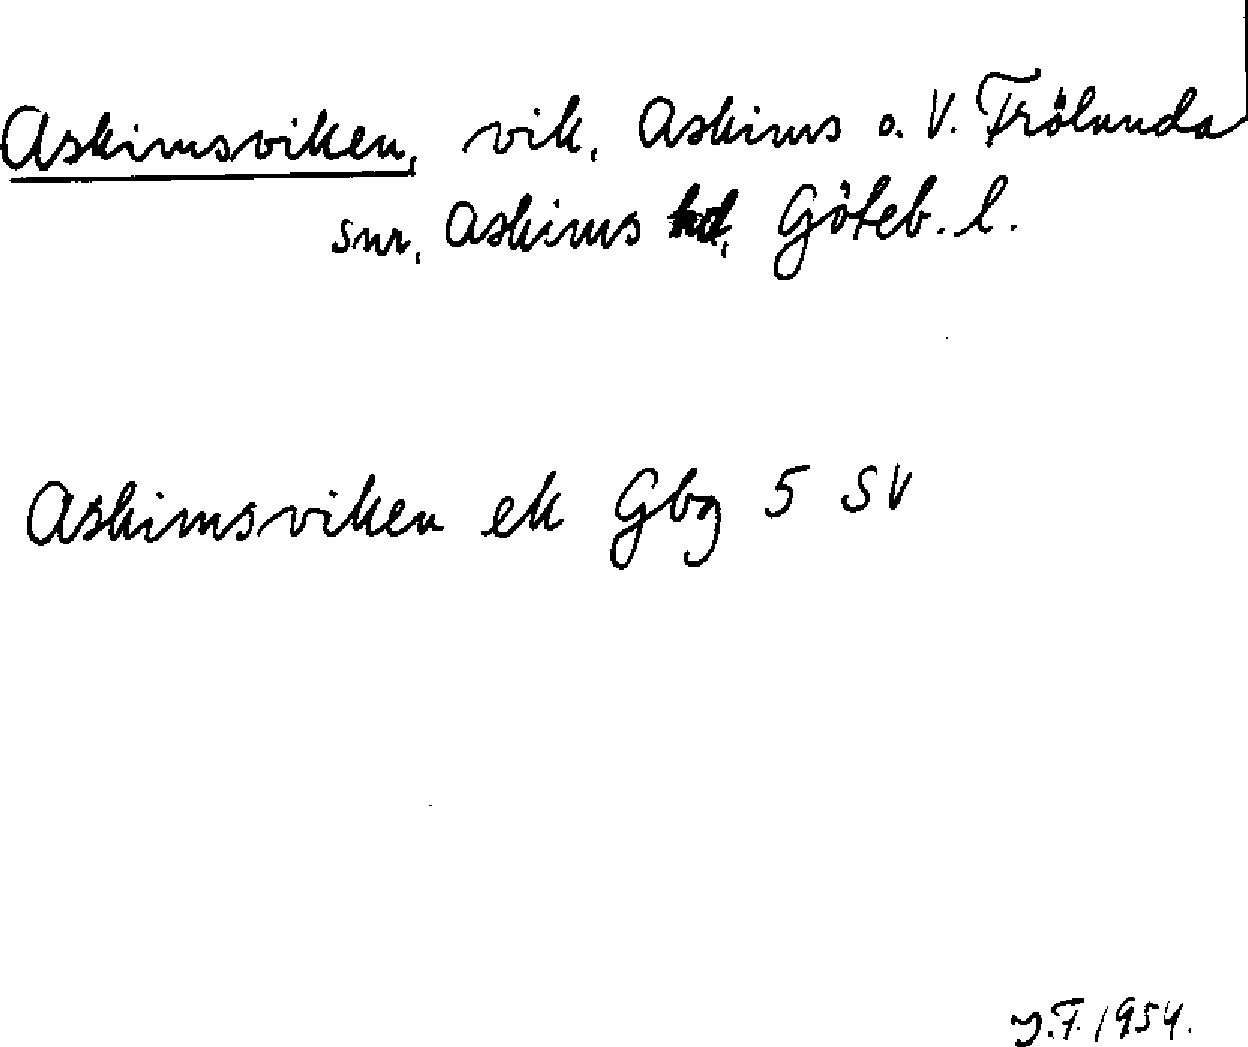 Askimsviken, vik, Askims o. V. Frölunda
snr, Askims hd, Göteb. l.
Askimsviken ek Gbg 5 SV
J.F. 1954.